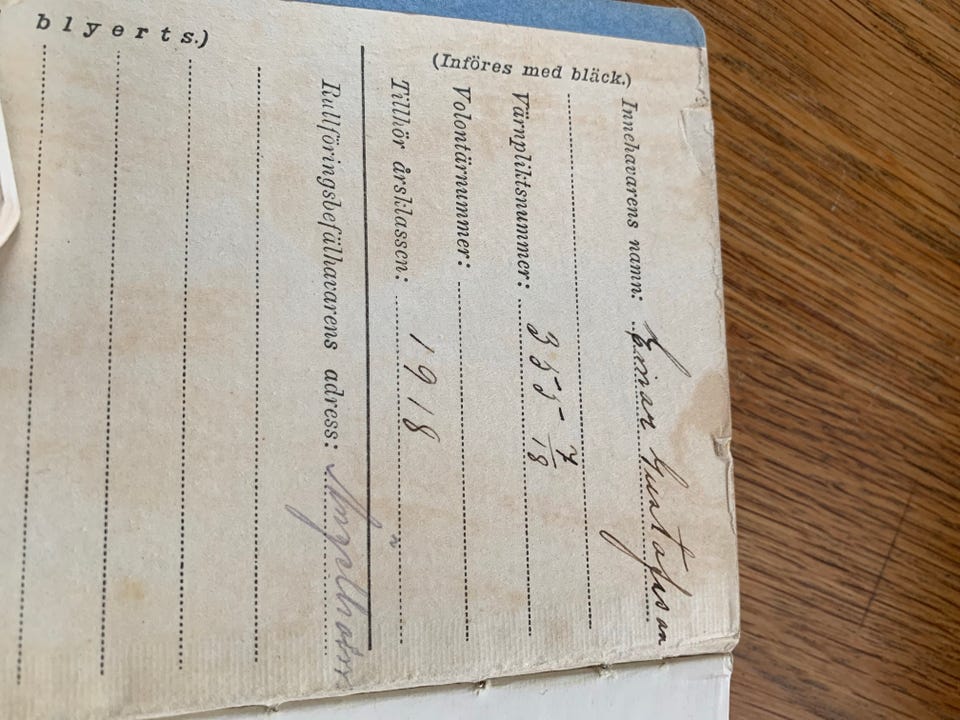 (Införes med bläck.)
Innehavarens namn: Einar Gustafson
Värnpliktsnummer: 355 7/18
Volontärnummer:
Tillhör årsklassen: 1918
Rullföringsbefälhavarens adress:
blyerts.)